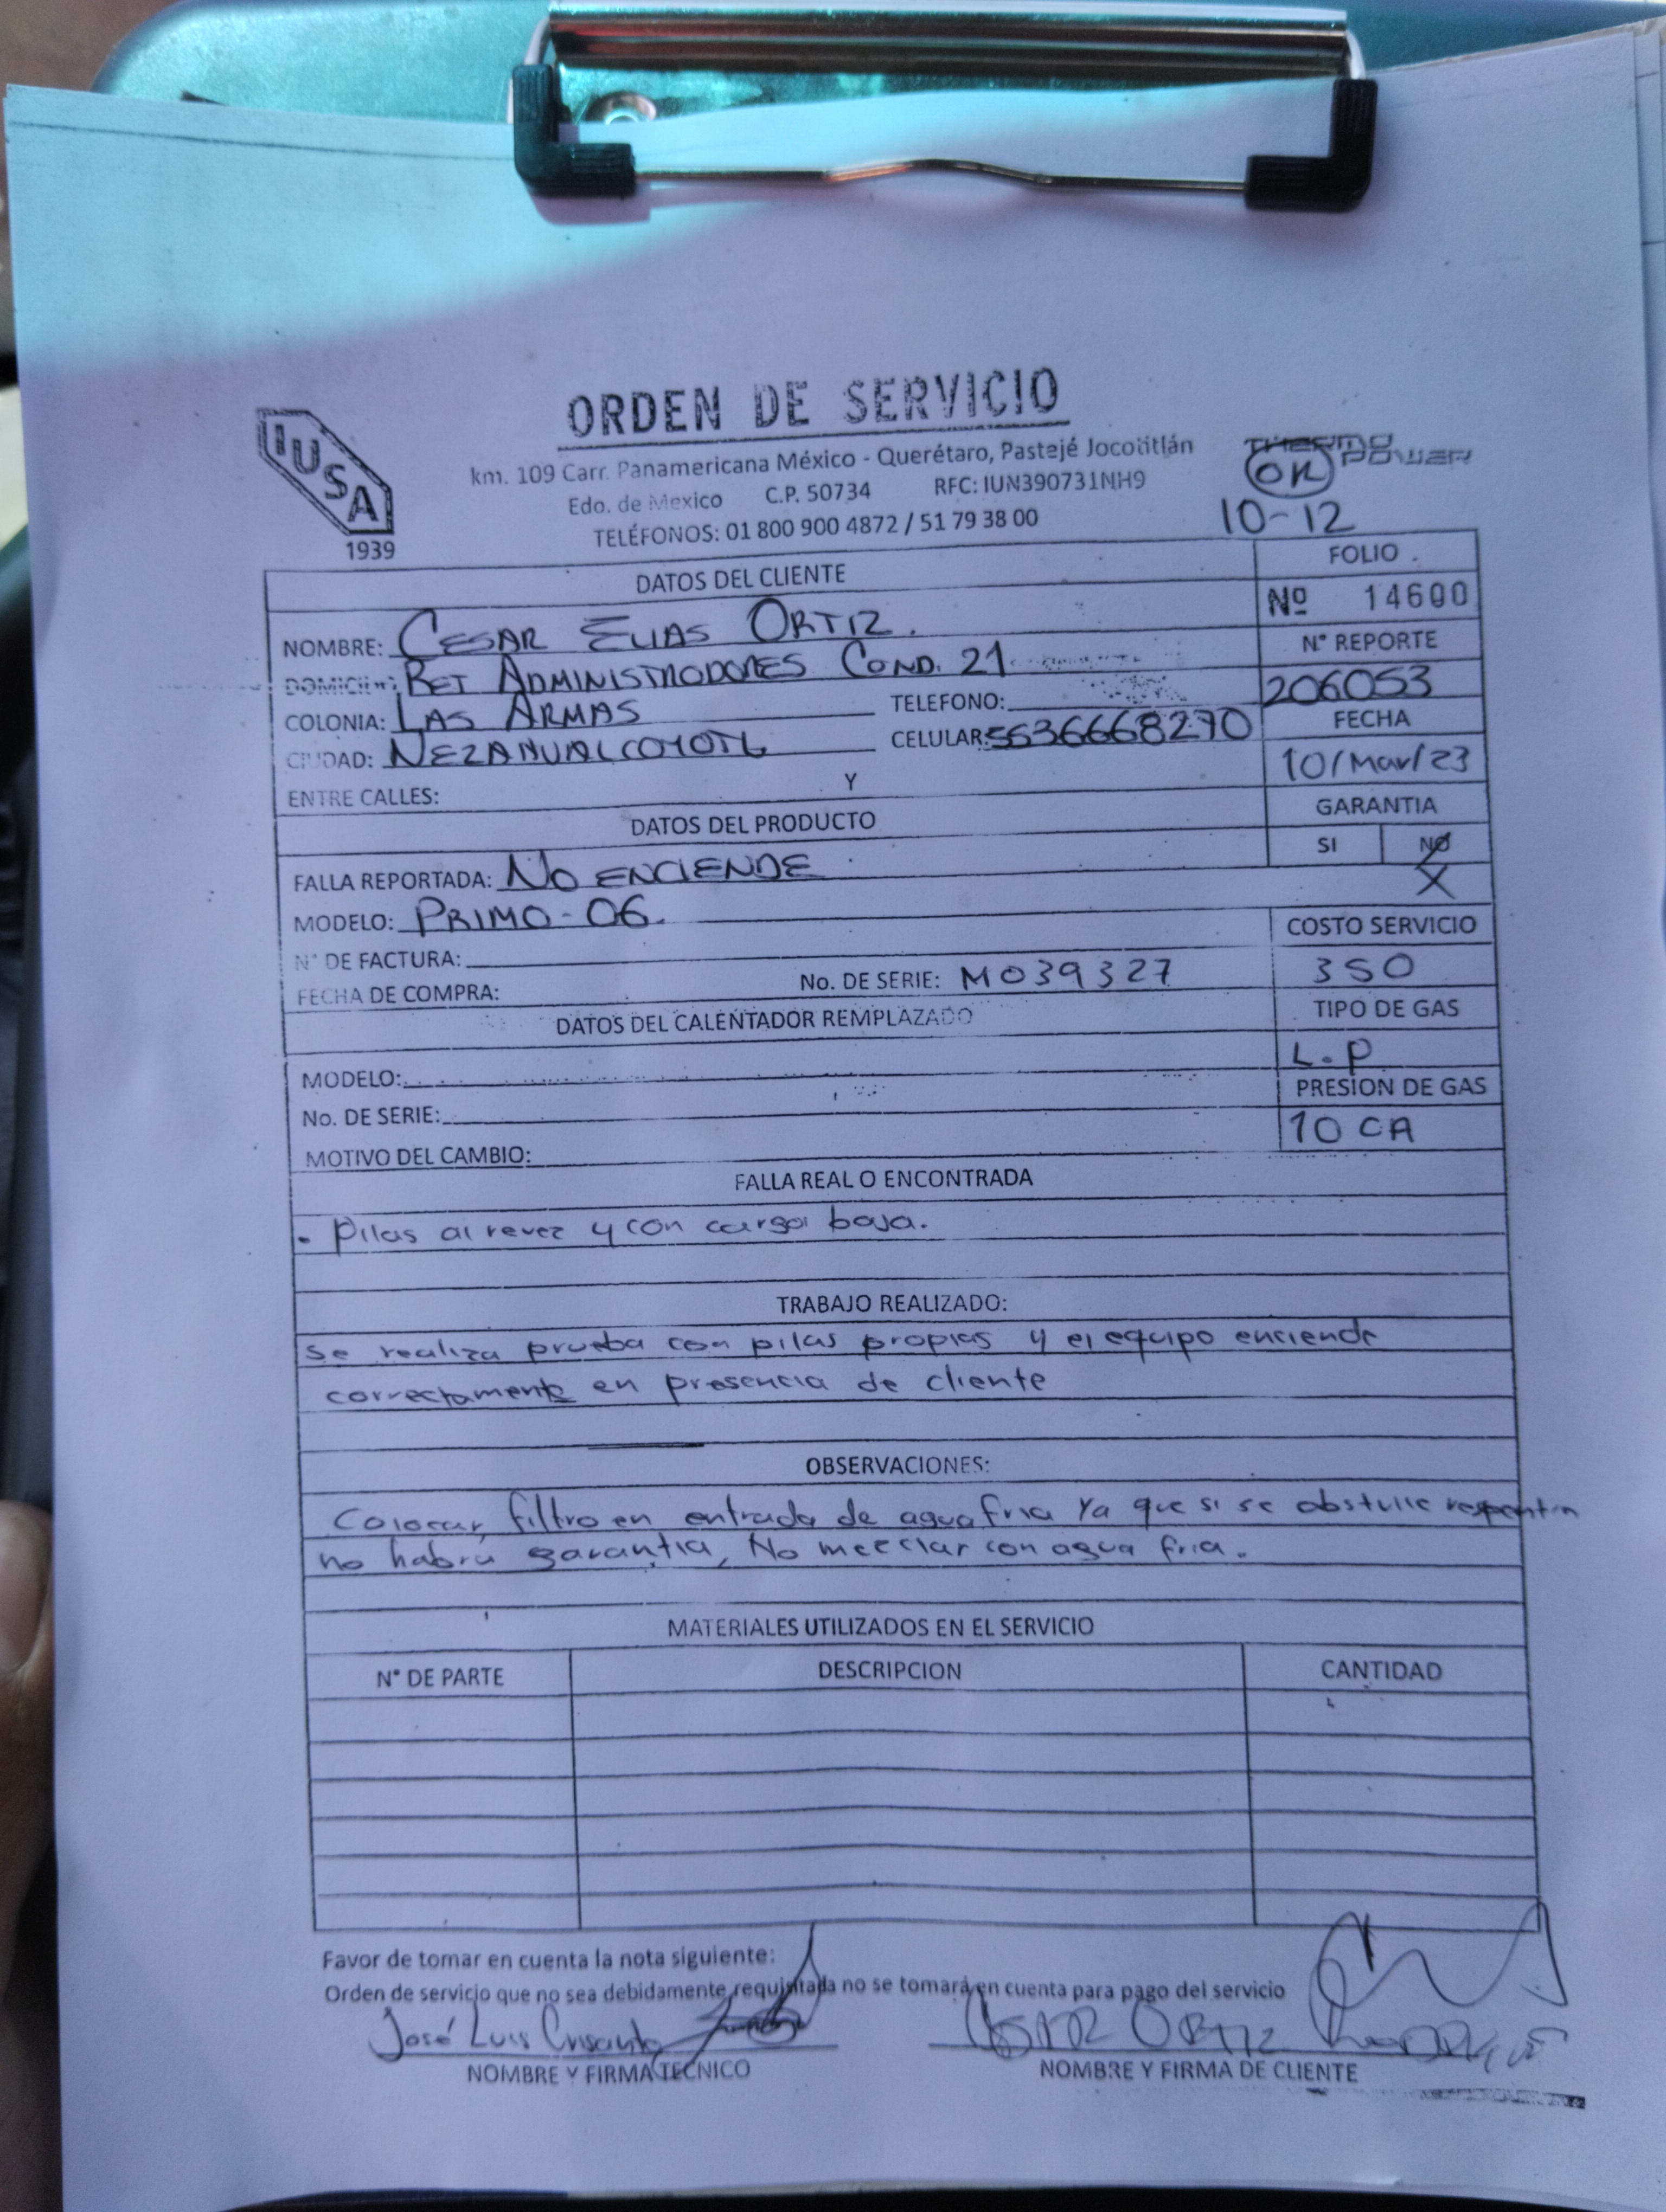 ORDEN DE SERVICIO
IUSA
1939
km. 109 Carr. Panamericana México - Querétaro, Pastejé Jocotitlán
Edo. de Mexico C.P. 50734 RFC: IUN390731NH9
TELÉFONOS: 01 800 900 4872 / 51 79 38 00
THERMO POWER
OK
10-12
DATOS DEL CLIENTE
FOLIO
Nº 14600
NOMBRE: CESAR ELIAS ORTIZ.
N° REPORTE
DOMICILIO: RET ADMINISTRODORES COND. 21
206053
COLONIA: LAS ARMAS TELEFONO:
FECHA
CIUDAD: NEZAHUALCOYOTL CELULAR: 5536668270
10/Mar/23
ENTRE CALLES: Y
GARANTIA
DATOS DEL PRODUCTO
SI NO
X
FALLA REPORTADA: NO ENCIENDE
MODELO: PRIMO-06.
COSTO SERVICIO
N° DE FACTURA:
350
FECHA DE COMPRA: No. DE SERIE: M039327
TIPO DE GAS
DATOS DEL CALENTADOR REMPLAZADO
L.P
MODELO:
PRESION DE GAS
No. DE SERIE:
10 CA
MOTIVO DEL CAMBIO:
FALLA REAL O ENCONTRADA
• Pilas al revez y con carga baja.
TRABAJO REALIZADO:
se realiza prueba con pilas propias y el equipo enciende
correctamente en presencia de cliente
OBSERVACIONES:
Colocar filtro en entrada de agua fria ya que si se obstulle
no habra garantia, No mezclar con agua fria.
MATERIALES UTILIZADOS EN EL SERVICIO
N° DE PARTE DESCRIPCION CANTIDAD
Favor de tomar en cuenta la nota siguiente:
Orden de servicio que no sea debidamente requisitada no se tomará en cuenta para pago del servicio
José Luis Crisanto
NOMBRE Y FIRMA TECNICO
ORTIZ
NOMBRE Y FIRMA DE CLIENTE